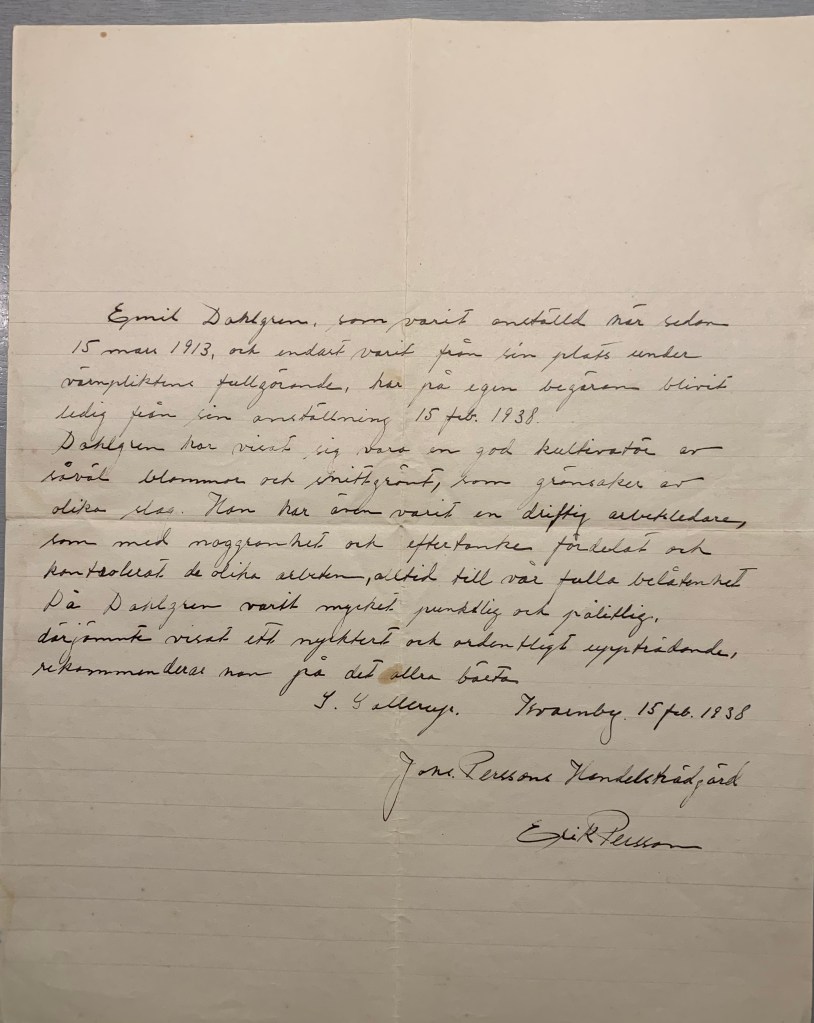 Emil Dahlgren, som varit anställd här sedan
15 mars 1913, och endast varit från sin plats under
värnpliktens fullgörande, har på egen begäran blivit
ledig från sin anställning 15 feb. 1938.
Dahlgren har visat sig vara en god kultivatör av
såväl blommor och snittgrönt, som grönsaker av
olika slag. Han har även varit en driftig arbetsledare,
som med noggranhet och eftertanke fördelat och
kontrolerat de olika arbeten, alltid till vår fulla belåtenhet
Då Dahlgren varit mycket punktlig och pålitlig,
därjämnte visat ett nyktert och ordentligt uppträdande,
rekommenderas han på det allra bästa
S. Sallerup. Kvarnby. 15 feb. 1938
Perssons Handelsträdgård
Erik Persson